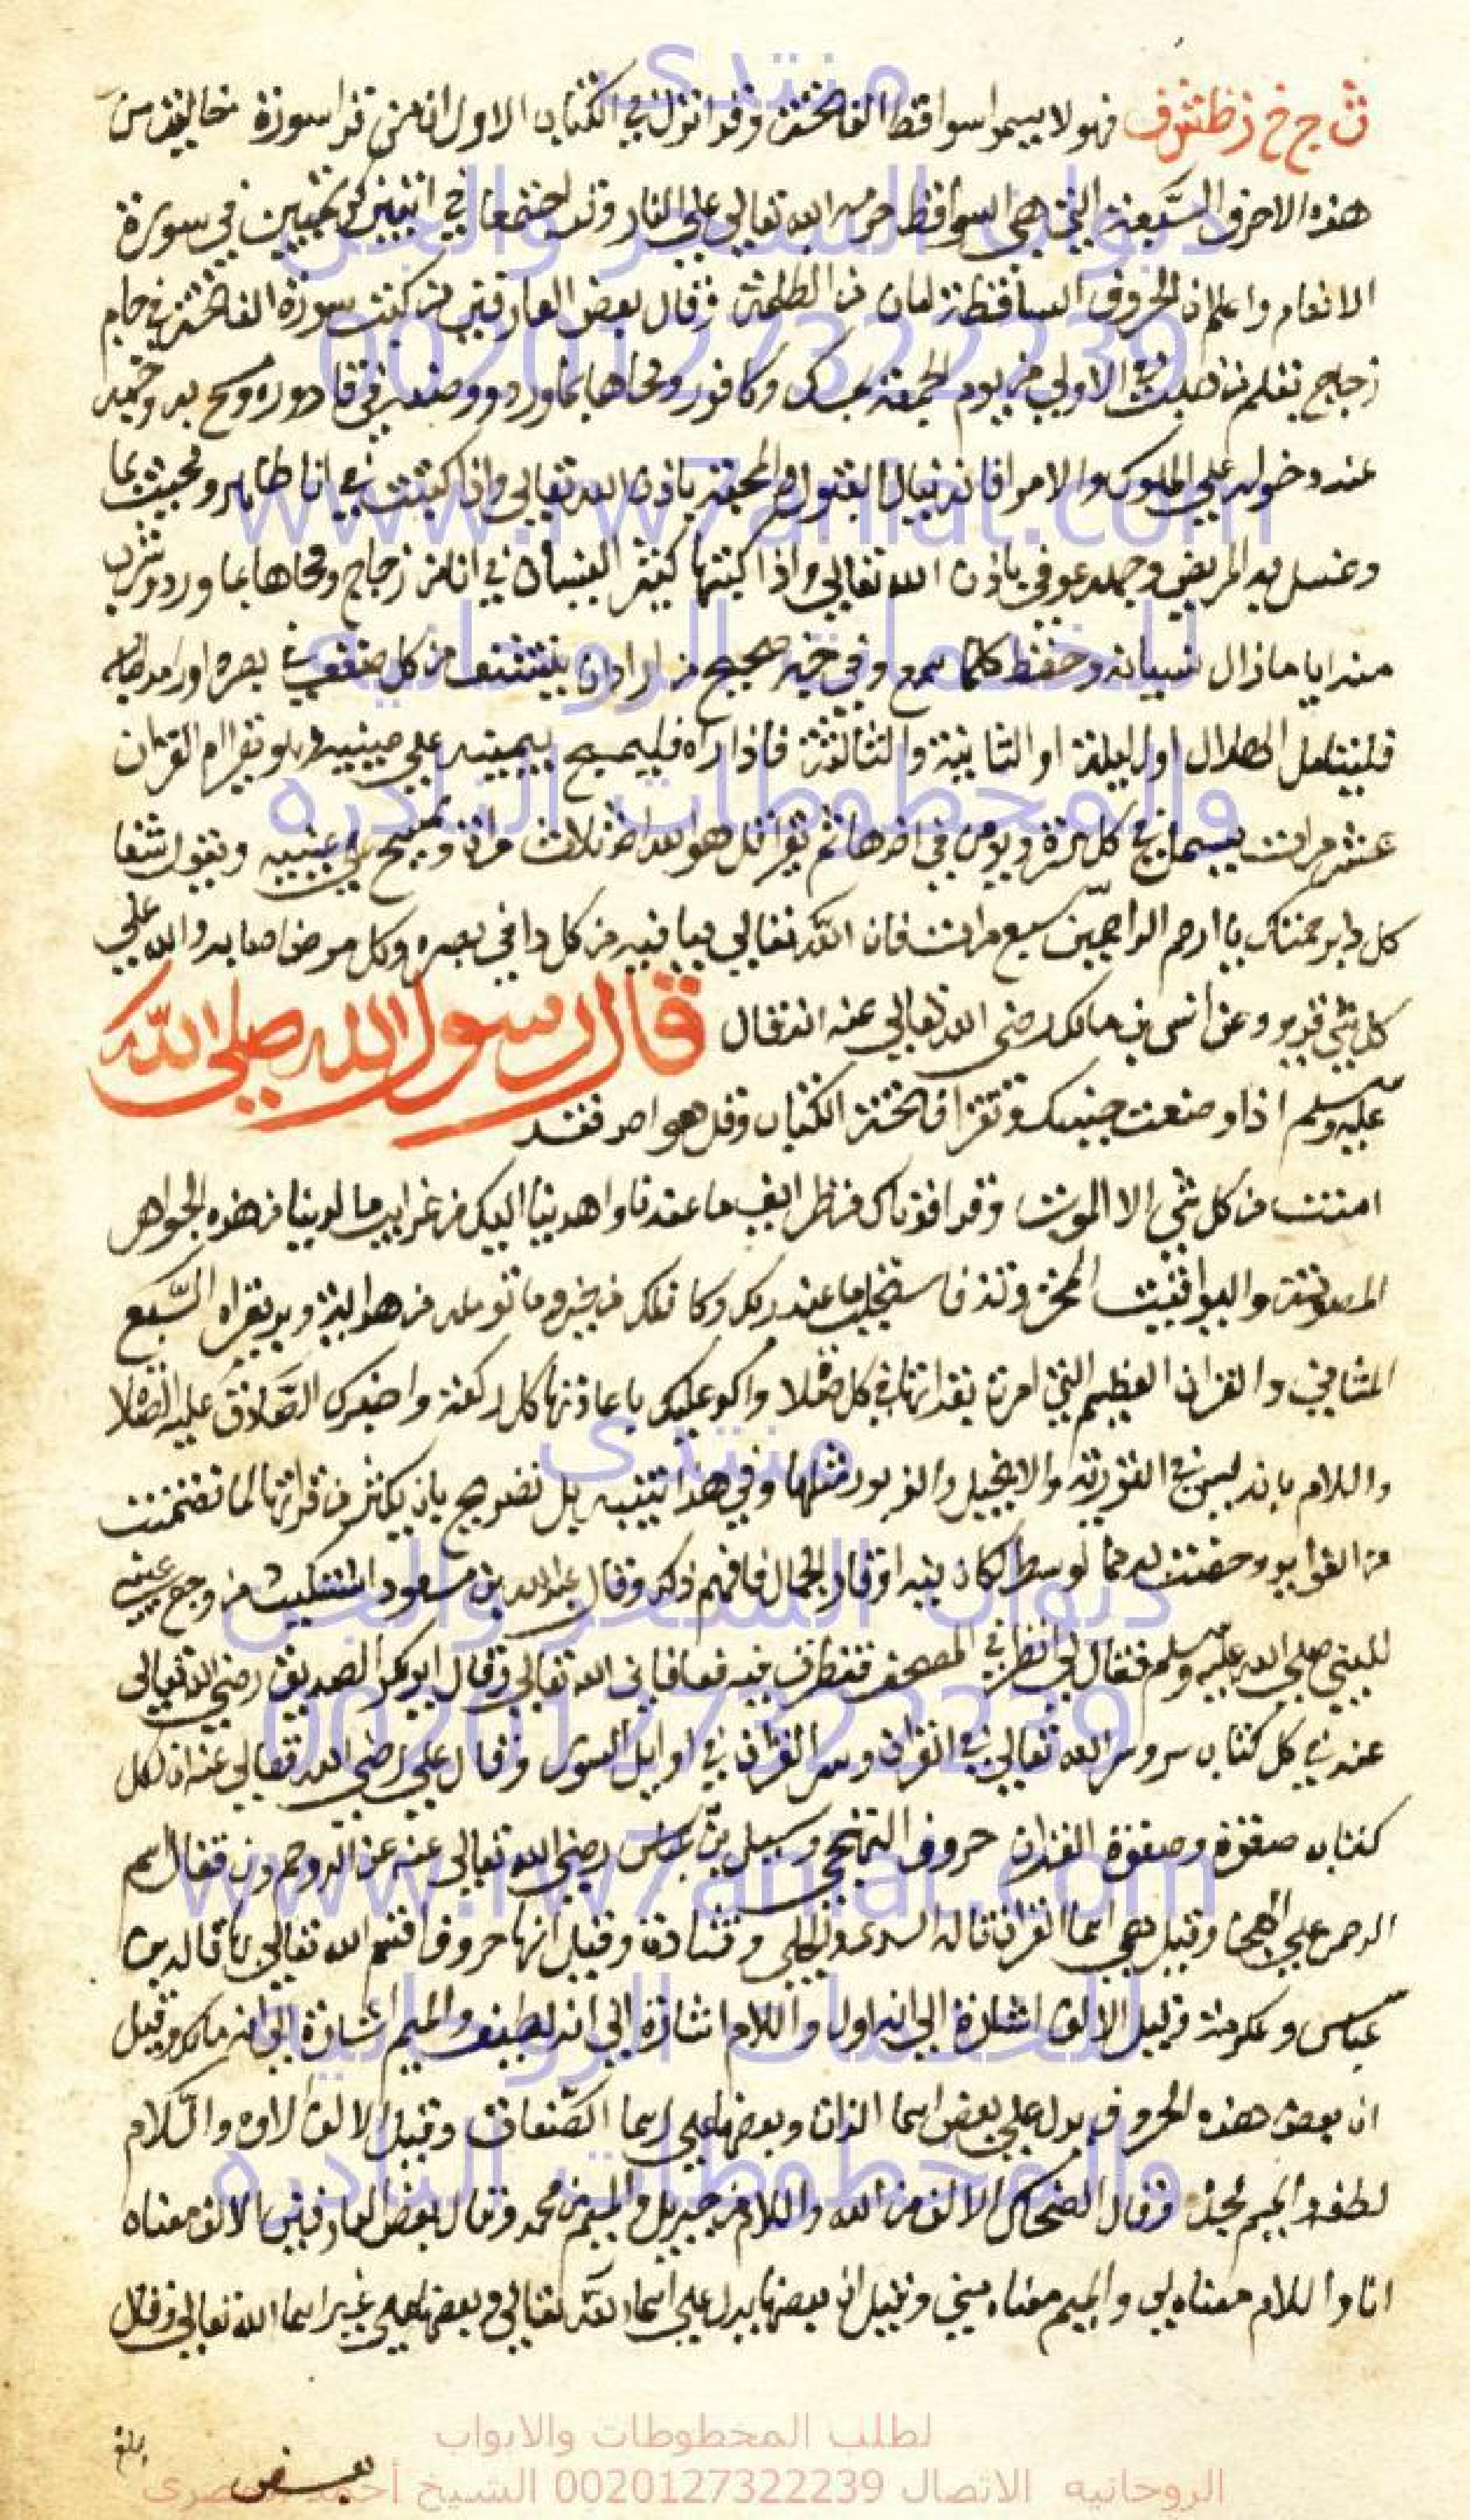 ث ج خ ز ظ ش ف فهولا يسموا سواقط الفاتحة وقد انزل في الكتاب الاول ان من قرا سورة خالية من
هذه الاحرف السبعة التي هي السواقط حرمه الله تعالى على النار وقد اجتمعا في اثنين في سورة
الانعام واعلم ان الحروف الساقطة امان من الظلمة وقال بعض العارفين من كتب سورة الفاتحة في جام
زجاج بقلم من ذهب في الاولى من يوم الجمعة بمسك وكافور ومحاها بماورد ووضعه في قارورة ومسح به وجهه
عند دخوله على الملوك والامرا فانه ينال القبول والمحبة باذن الله تعالى واذا كتبت في انا طاهر ومحيت بما
وغسل به المريض وجهه عوفي باذن الله تعالى واذا كتبها كثير النسيان في انا من زجاج ومحاها بما ورد وشرب
منه اياما زال نسيانه وحفظ كلما سمع وفي خبر صحيح من اراد ان من كل ضعف في بصره او رمد
فليتامل الهلال اول ليلة او الثانية والثالثة فاذا راه فليمسح بيمينه على عينيه وهو يقرا ام القران
عشر مرات يبسمل في كل مرة ويؤمن في اخرها ثم يقرا قل هو الله احد ثلاث مرات ويمسح على عينيه ويقول شفا
كل دا برحمتك يا ارحم الراحمين سبع مرات فان الله تعالى يعافيه من كل دا في بصره وكل مرض اصابه والله على
كل شي قدير وعن انس بن مالك رضي الله تعالى عنه انه قال قال رسول الله صلى الله
عليه وسلم اذا وضعت جنبك وتقرا فاتحة الكتاب وقل هو احد فقد
امنت من كل شي الا الموت وقد افدناك من ظرايف ما عندنا واهدينا اليك من غرايب ما لدينا من هذه الجواهر
المصونة واليواقيت المخزونة فاستجلب ما عند ربك وكافلك من خير وما تومله من هوابه وبر بقراه السبع
المثاني والقران العظيم التي امرنا بقراتها في كل صلا واكد عليك باعادتها كل ركعة واخبرك الصادق عليه الصلا
والسلام بانه ليس في التورية والانجيل والزبور مثلها وفي هذا تنبيه بل تصريح بان يكثر من قراتها لما تضمنت
من الفوايد فافهم ذلك وقال عبد الله بن مسعود اشتكيت من وجع عيني
للنبي صلى الله عليه وسلم فقال لي انظر في المصحف فنظرت فيه فعافاني الله تعالى وقال ابو بكر الصديق رضي الله تعالى
عنه في كل كتاب سر وسر الله تعالى في القران وسر القران في اوايل السور وقال علي رضي الله تعالى عنه ان لكل
كتاب صفوة وصفوة القران حروف التهجي وسيل بن عباس رضي الله تعالى عنه عن الر وحم ون فقال اسم
الرحمن على الهجا وقيل هي اسما القران قاله السدي والكلبي وقتادة وقيل انها حروف اقسم الله تعالى بها قاله بن
عباس وعكرمة وقيل الالف اشارة الى انه اول واللام اشارة الى انه لطيف والميم اشارة الى انه مالك وقيل
ان بعض هذه الحروف يدل على بعض اسما الذات وبعضها على اسما الصفات وقيل الالف الاوه واللام
لطفه والميم مجده وقال الضحاك الالف من الله واللام من جبريل والميم من محمد وقال بعض العارفين الالف معناه
انا واللام معناه لي والميم معناه مني وقيل ان بعضها يدل على اسما الله تعالى وبعضها على غير اسما الله تعالى وقال
بعض
بلغ
منتدى
ديوان السحر والجن
0020127322239
www.rw7aniat.com
للخدمات الروحانيه
والمخطوطات النادره
منتدى
ديوان السحر والجن
0020127322239
www.rw7aniat.com
للخدمات الروحانيه
والمخطوطات النادره
لطلب المخطوطات والابواب
الروحانيه الاتصال 0020127322239 الشيخ أحمد المصرى